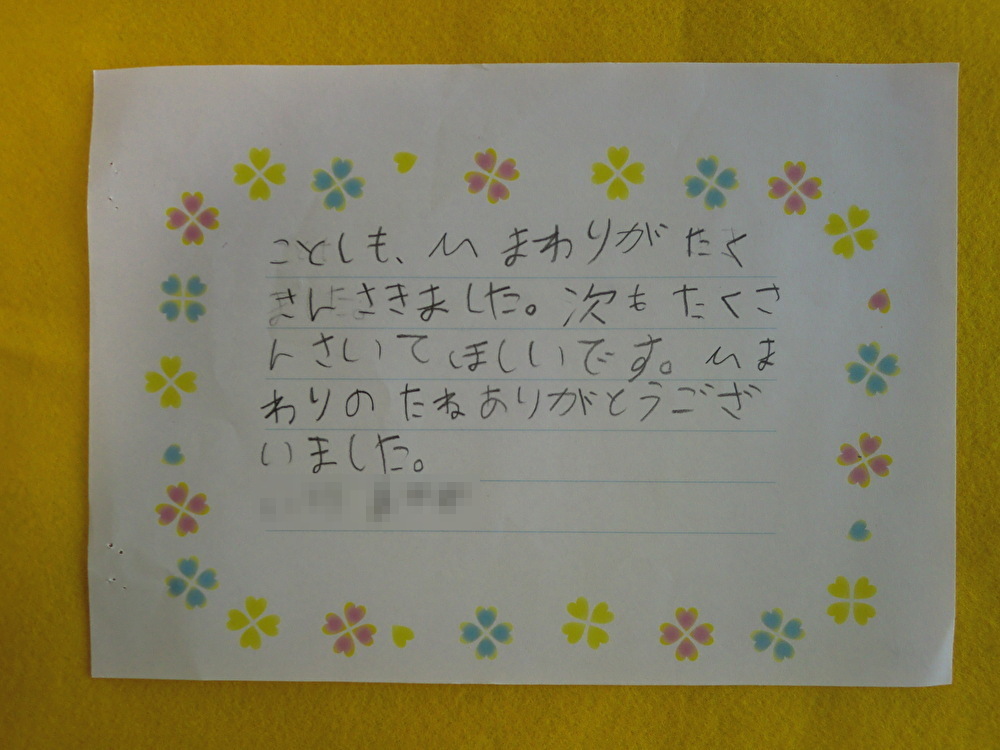 ことしも、ひまわりがたく
さんさきました。次もたくさ
んさいてほしいです。ひま
わりのたねありがとうござ
いました。